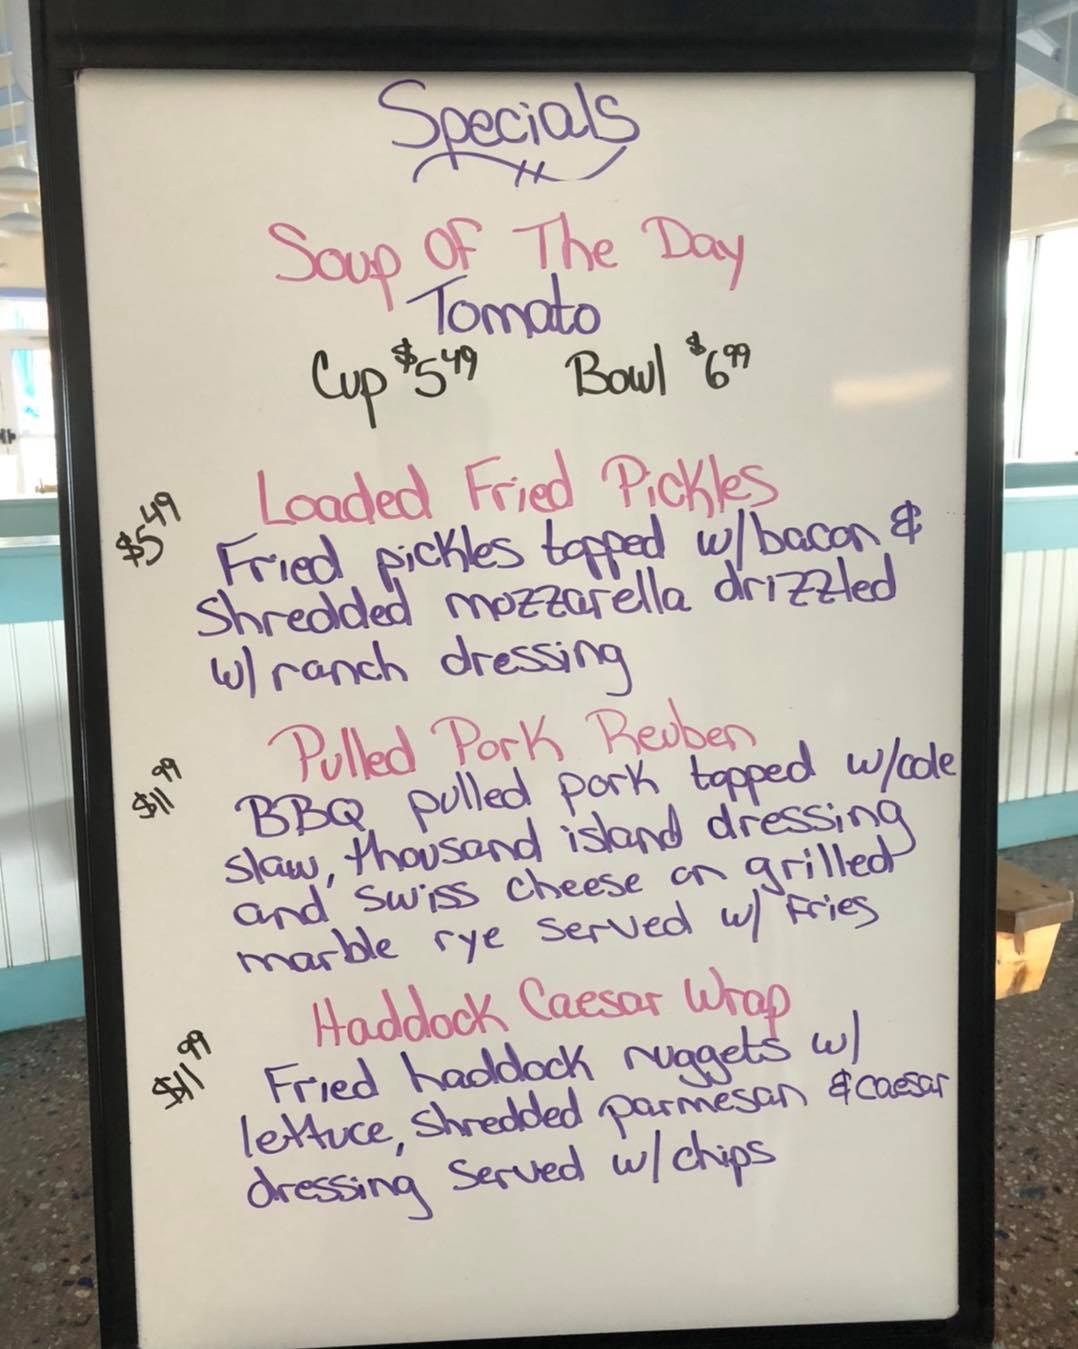 Specials
Soup Of The Day
Tomato
Cup $5.49 Bowl $6.99
Loaded Fried Pickles
$5.49
Fried pickles topped w/bacon &
shredded mozzarella drizzled
w/ranch dressing
Pulled Pork Reuben
$11.99
BBQ pulled pork topped w/cole
slaw, thousand island dressing
and swiss cheese on grilled
marble rye served w/ fries
Haddock Caesar Wrap
$11.99
Fried haddock nuggets w/
lettuce, shredded parmesan & caesar
dressing served w/chips